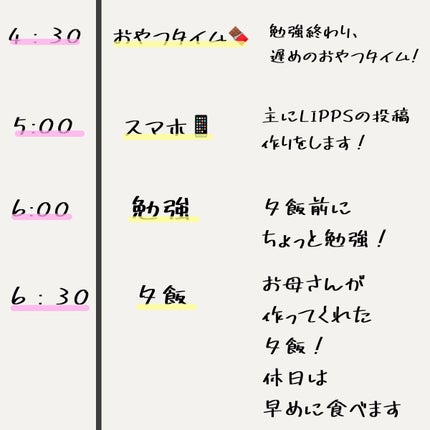 4:30 おやつタイム🍫 勉強終わり、
遅めのおやつタイム!
5:00 スマホ📱 主にLIPPSの投稿
作りをします!
6:00 勉強 夕飯前に
ちょっと勉強!
6:30 夕飯 お母さんが
作ってくれた
夕飯!
休日は
早めに食べます